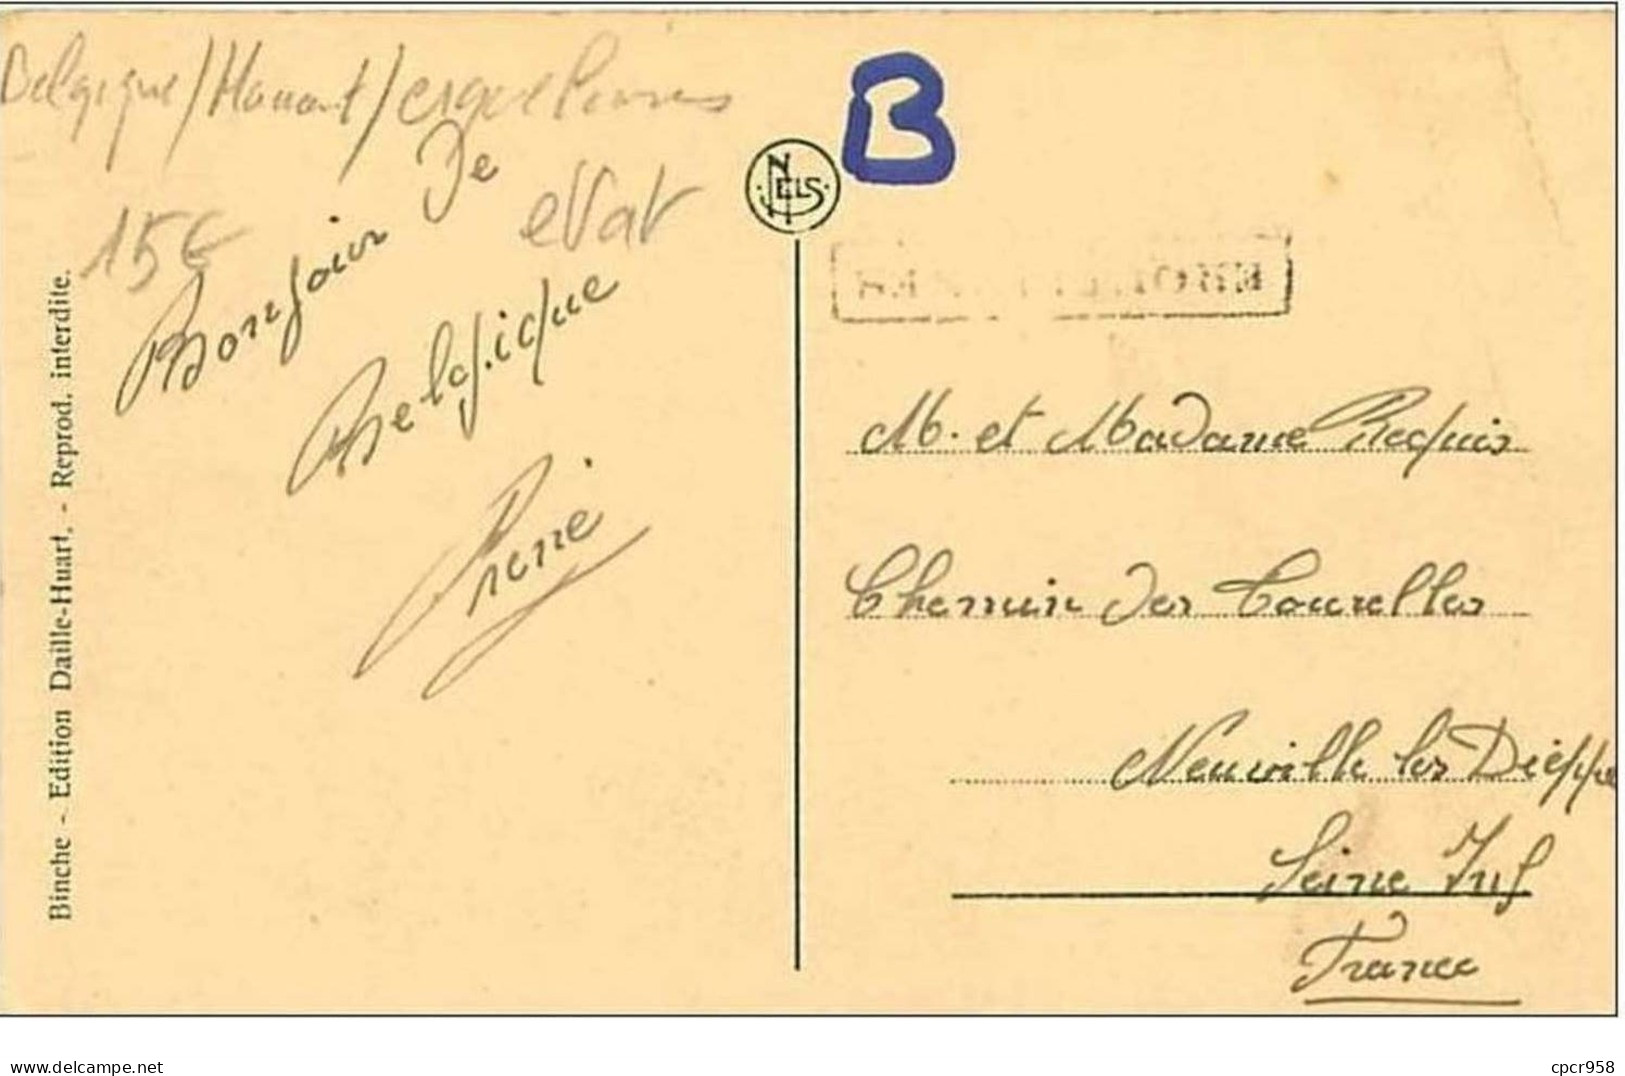 Belgique/Hainaut/erquelinnes
B
15€
etat
NELS
Bonjour de
Belgique
René
Binche - Edition Daille-Huart. - Reprod. interdite.
M. et Madame Requis
Chemin des Tourelles
Neuville les Dieppe
Seine Inf
France
delcampe.net
cpcr958